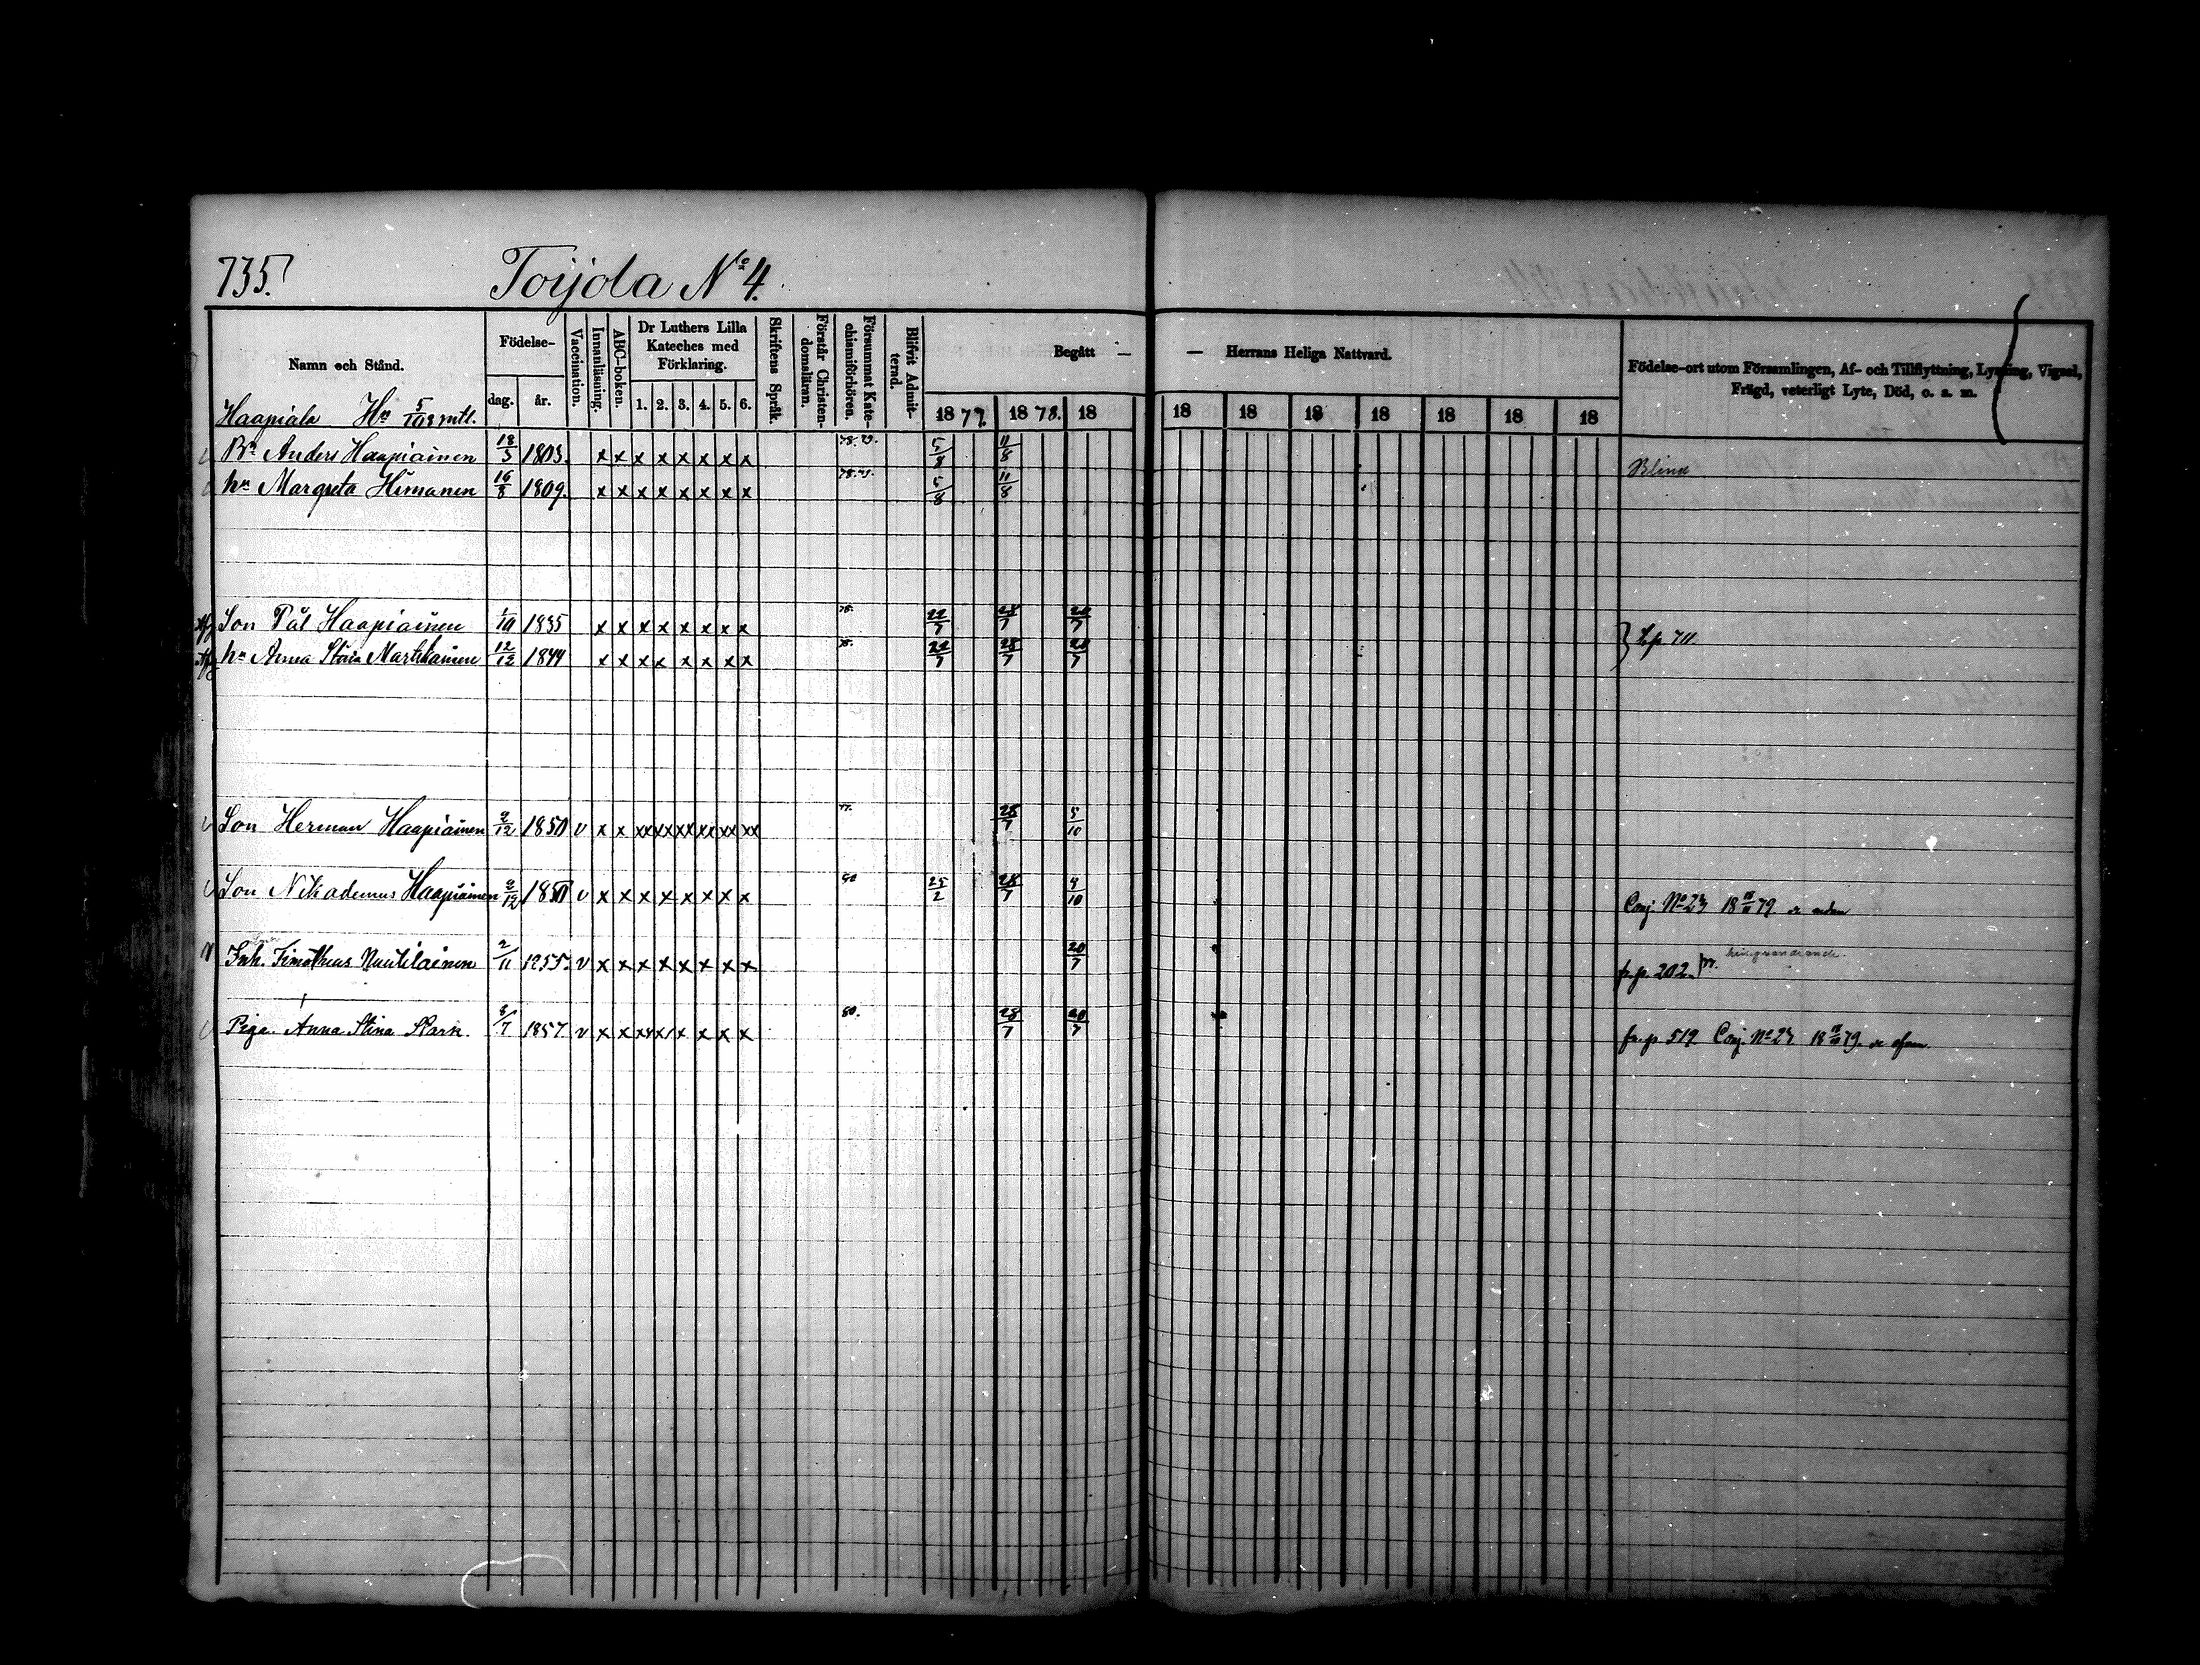 735.
Toijola No 4.
Namn och Stånd.
Födelse-
dag.
år.
Vaccination.
Innanläsning.
ABC-boken.
Dr Luthers Lilla
Kateches med
Förklaring.
1. 2. 3. 4. 5. 6.
Skriftens Språk.
Förstår Christen-
domsläran.
Försummat Kate-
chismiförhören.
Blifvit Admit-
terad.
Begått — — Herrans Heliga Nattvard.
1877. 1878. 18 18 18 18 18 18 18 18
Födelse-ort utom Församlingen, Af- och Tillflyttning, Lysning, Vigsel,
Frägd, veterligt Lyte, Död, o. s. m.
Haapiala
mtl.
Anders Haapiainen 18/3 1803. x x x x x x x x 5/8 11/8 Blind
hu Margreta Himanen 16/8 1809. x x x x x x x x 5/8 11/8
Son Pål Haapiainen 1/10 1835 x x x x x x x x 78. 22/7 28/7 20/7
hu Anna Stina Martikainen 12/12 1844 x x x x x x x x 22/7 28/7 20/7
711
Son Herman Haapiainen 2/12 1850 v x x xx xx xx xx xx xx 77. 28/7 5/10
Son Nikodemus Haapiainen 2/12 1850 v x x x x x x x x 80 25/2 28/7 4/10 Conj. No 23 18 79
Inh. Timotheus Nuutilainen 2/11 1855. v x x x x x x x x 20/7 fr. p. 202.
Piga Anna Stina Stark 8/7 1857. v x x xx x x x x x 80. 28/7 20/7 fr. p. 519 Conj. No 23 18 79.